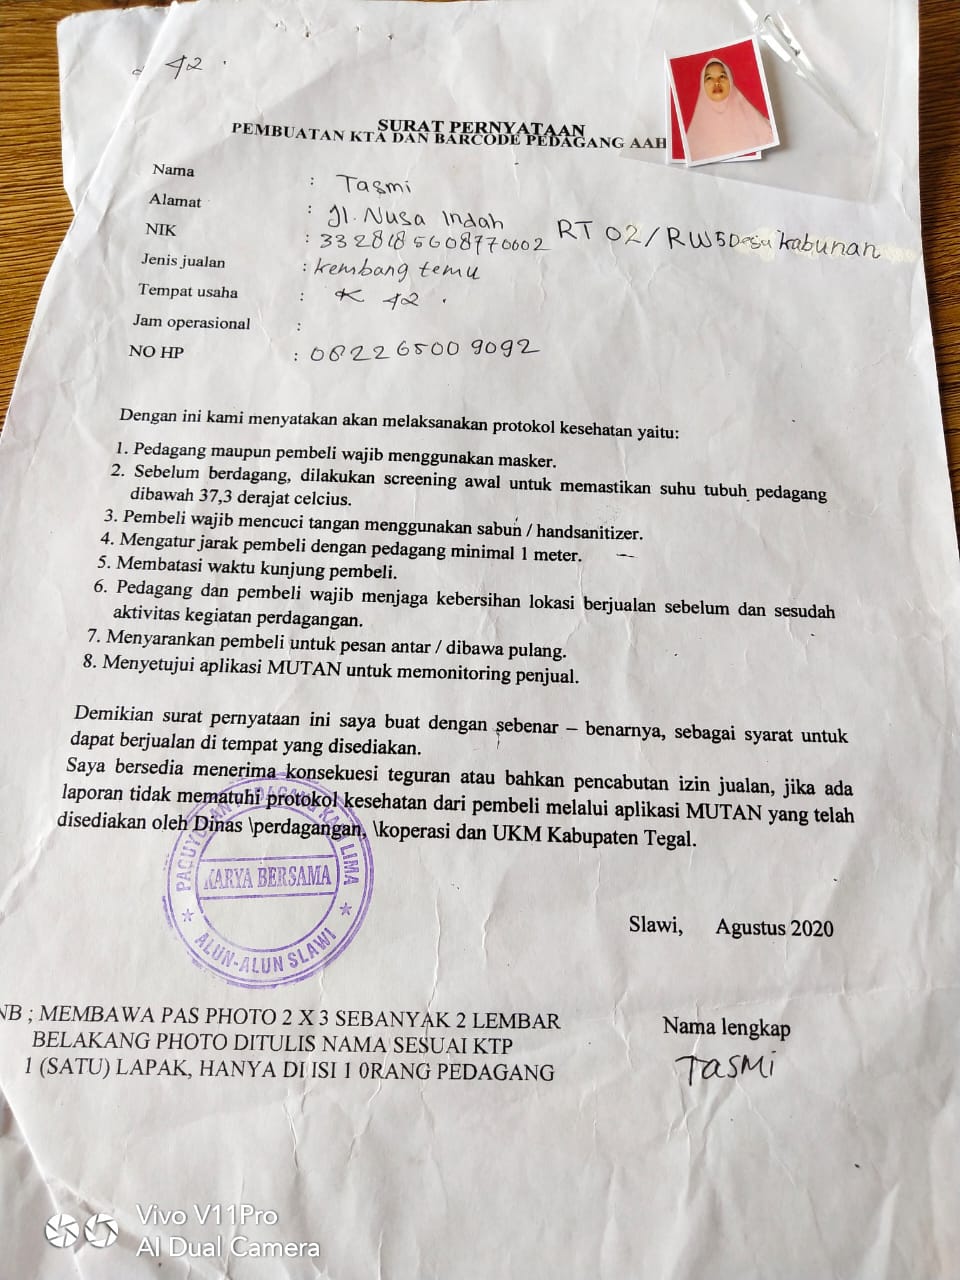 42 .
SURAT PERNYATAAN
PEMBUATAN KTA DAN BARCODE PEDAGANG AAH
Nama : Tasmi
Alamat : Jl. Nusa Indah RT 02/RW5 Desa kabunan
NIK : 3328185608770002
Jenis jualan : kembang temu
Tempat usaha : K 42 .
Jam operasional :
NO HP : 082265009092
Dengan ini kami menyatakan akan melaksanakan protokol kesehatan yaitu:
1. Pedagang maupun pembeli wajib menggunakan masker.
2. Sebelum berdagang, dilakukan screening awal untuk memastikan suhu tubuh pedagang
dibawah 37,3 derajat celcius.
3. Pembeli wajib mencuci tangan menggunakan sabun / handsanitizer.
4. Mengatur jarak pembeli dengan pedagang minimal 1 meter.
5. Membatasi waktu kunjung pembeli.
6. Pedagang dan pembeli wajib menjaga kebersihan lokasi berjualan sebelum dan sesudah
aktivitas kegiatan perdagangan.
7. Menyarankan pembeli untuk pesan antar / dibawa pulang.
8. Menyetujui aplikasi MUTAN untuk memonitoring penjual.
Demikian surat pernyataan ini saya buat dengan sebenar – benarnya, sebagai syarat untuk
dapat berjualan di tempat yang disediakan.
Saya bersedia menerima konsekuesi teguran atau bahkan pencabutan izin jualan, jika ada
laporan tidak mematuhi protokol kesehatan dari pembeli melalui aplikasi MUTAN yang telah
disediakan oleh Dinas \perdagangan, \koperasi dan UKM Kabupaten Tegal.
PAGUYUBAN PEDAGANG KAKI LIMA
KARYA BERSAMA
ALUN-ALUN SLAWI
Slawi, Agustus 2020
NB ; MEMBAWA PAS PHOTO 2 X 3 SEBANYAK 2 LEMBAR
BELAKANG PHOTO DITULIS NAMA SESUAI KTP
1 (SATU) LAPAK, HANYA DI ISI 1 0RANG PEDAGANG
Nama lengkap
TASMI
Vivo V11Pro
AI Dual Camera